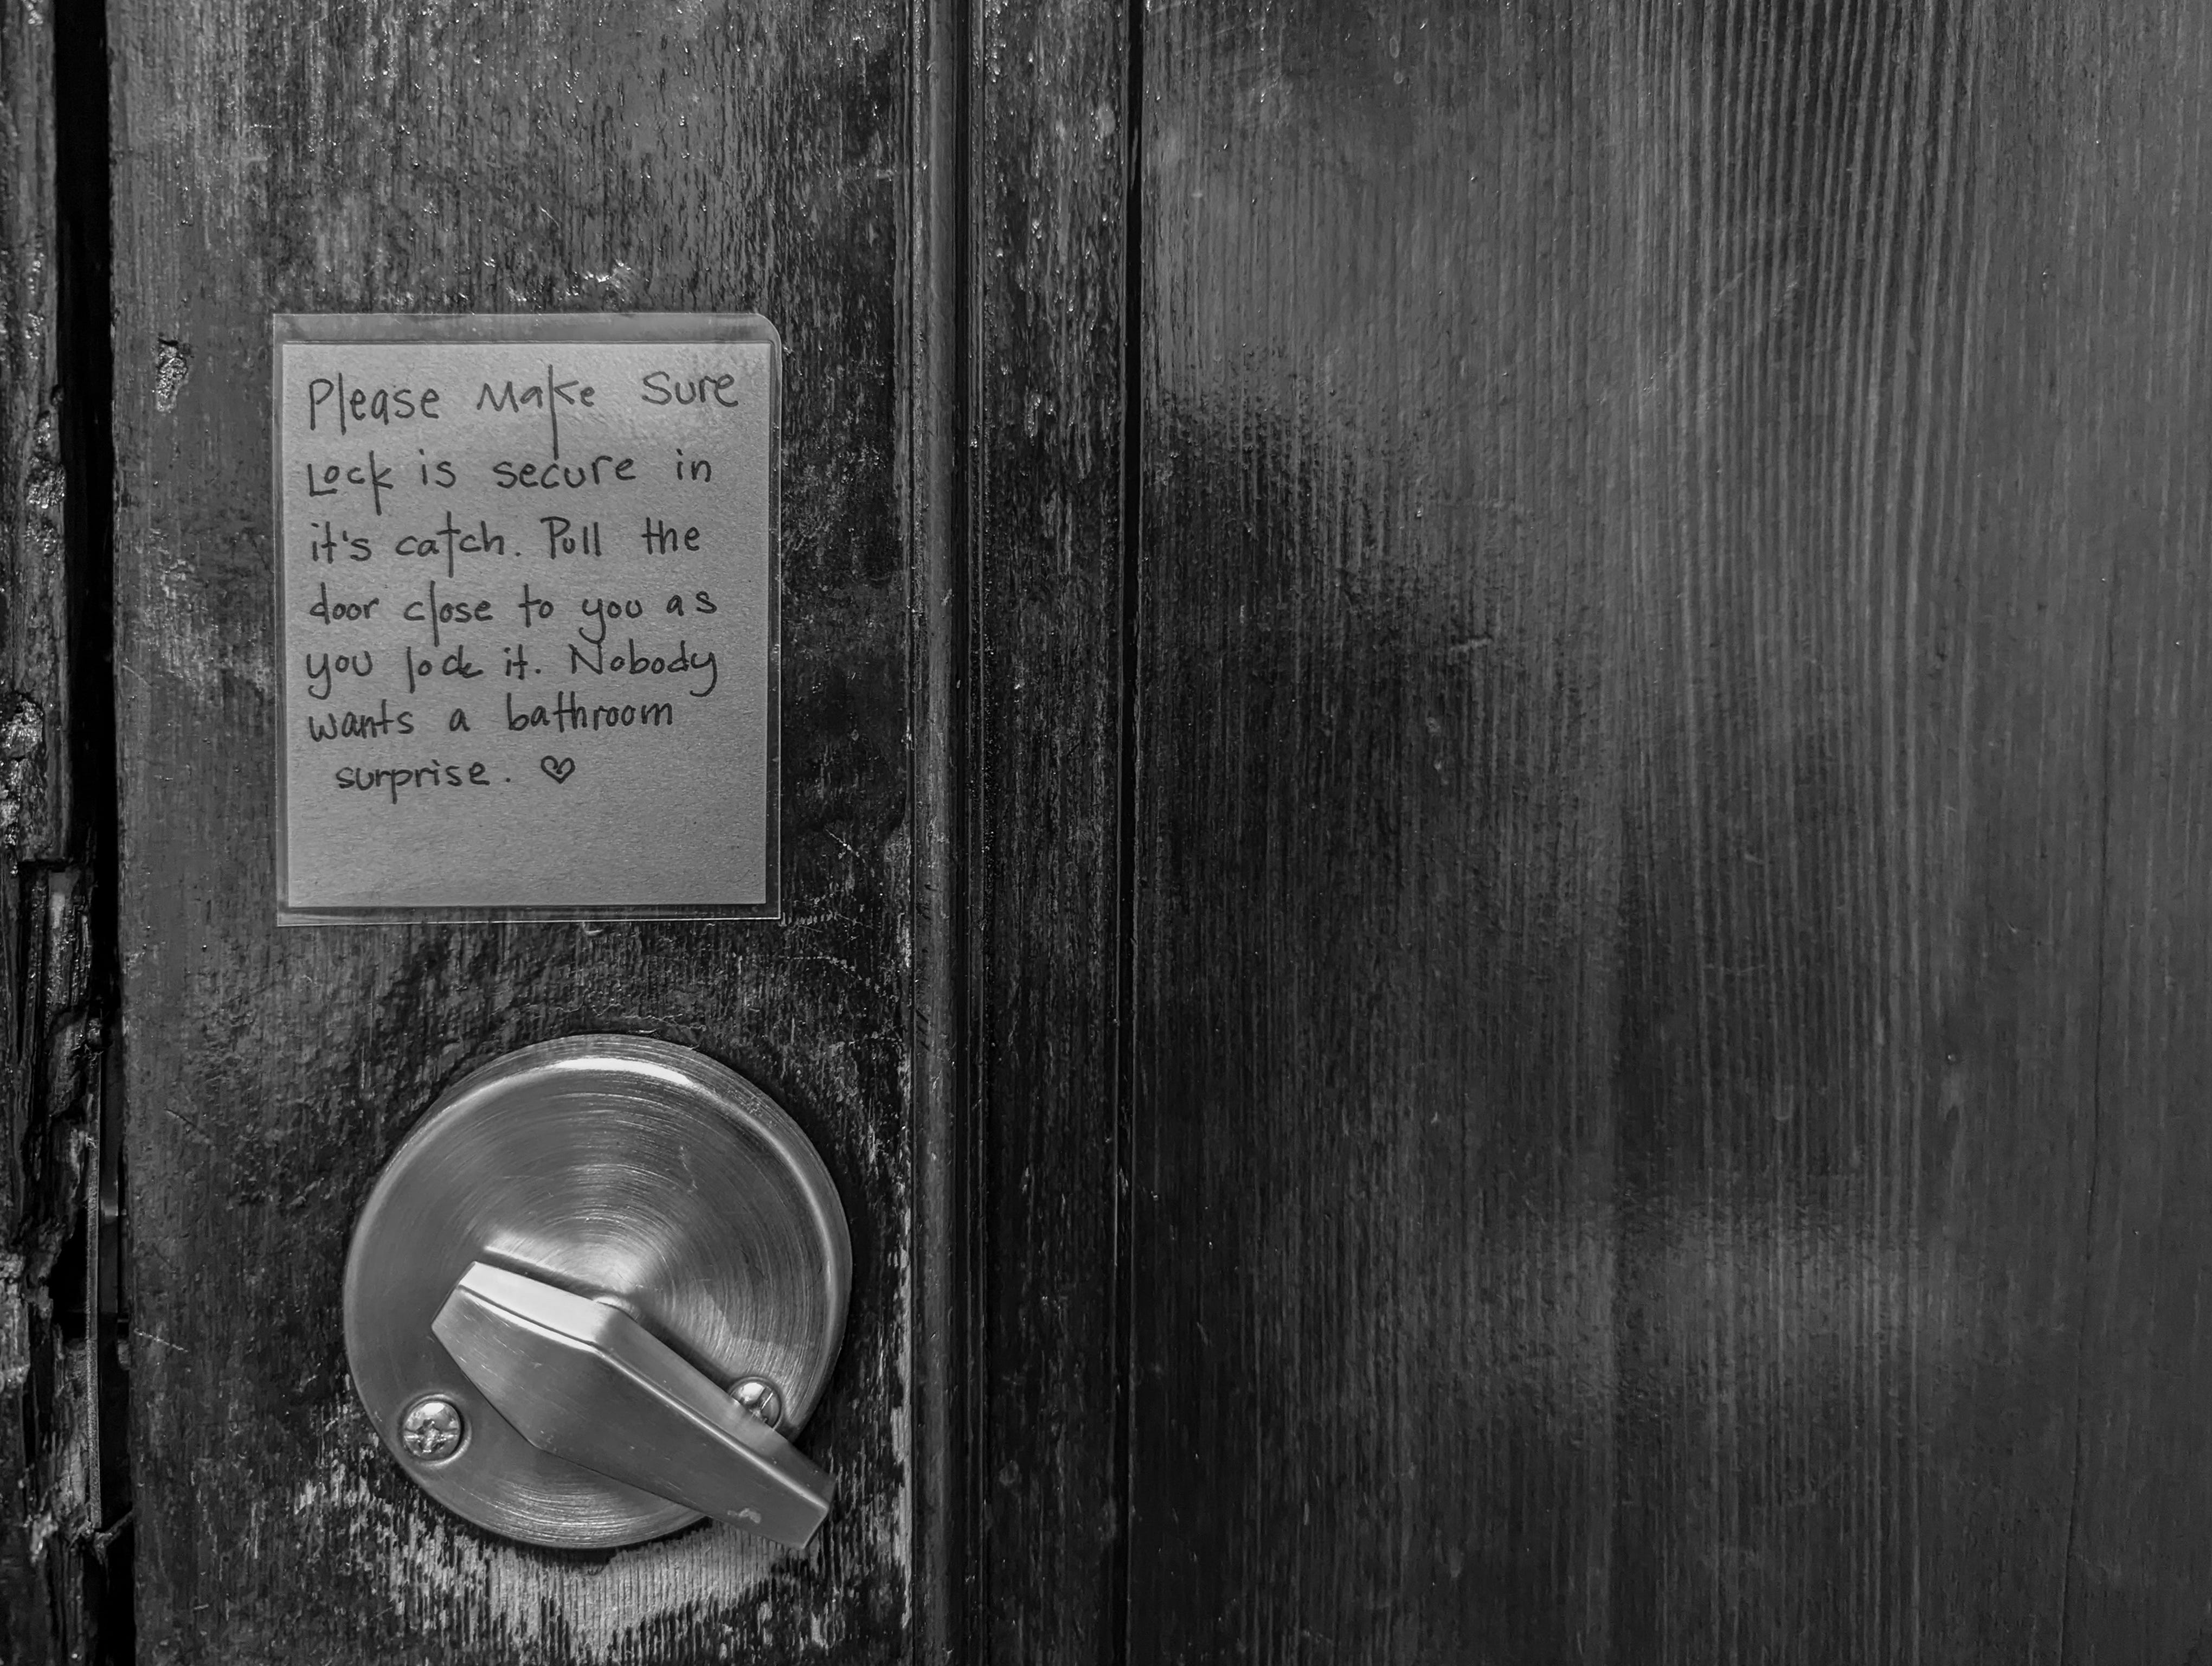 Please Make Sure
Lock is secure in
it's catch. Pull the
door close to you as
you lock it. Nobody
wants a bathroom
surprise. ♡